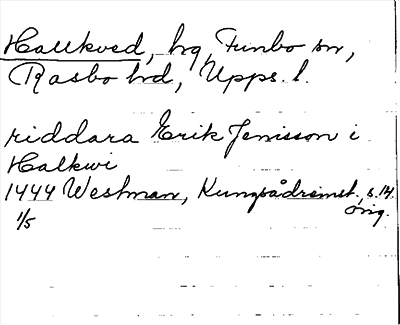 Hallkved, hg, Funbo sn,
Rasbo hd, Upps. l.
riddara Erik Jenisson i
Halkwi
1444 Westman, Kungsådrainst., s. 14.
1/5 orig.